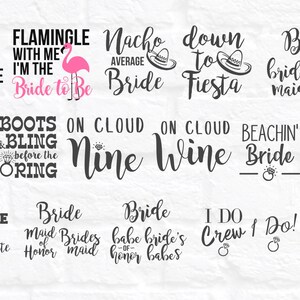 FLAMINGLE
WITH ME
I'M THE
Bride to Be
Nacho
AVERAGE
Bride
down
to
Fiesta
BOOTS
BLING
before the
RING
ON CLOUD
Nine
ON CLOUD
Wine
BEACHIN'
Bride
Bride
Maid
of
Honor
Brides
maid
Bride
babe
OF
honor
bride's
babes
I DO
Crew
I Do!